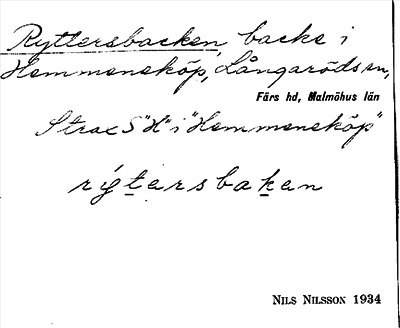 Ryttersbacken, backe i
Hemmeneköp, Långaröds sn,
Färs hd, Malmöhus län
Strax S "H" i "Hemmeneköp"
rýtersbaken
NILS NILSSON 1934